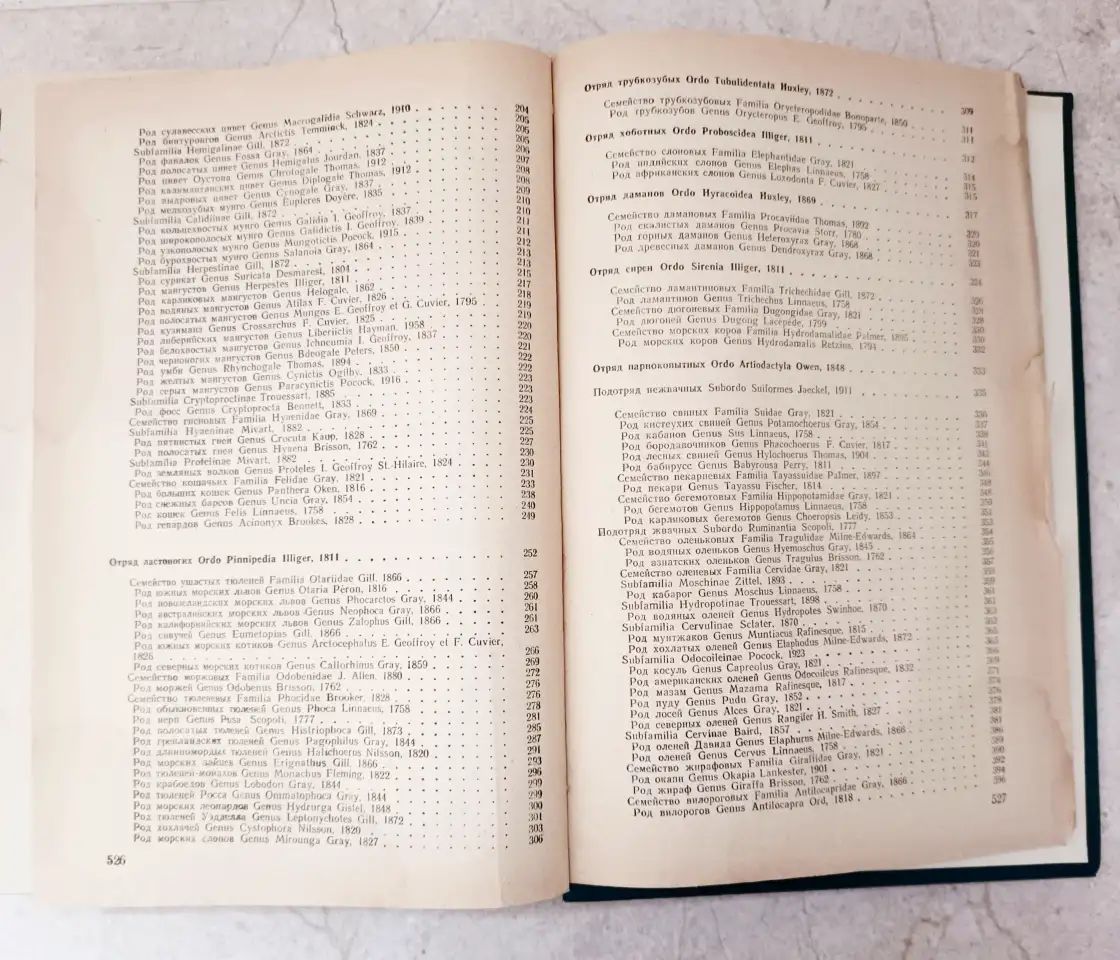 Род сулавесских цивет Genus Macrogalidia Schwarz, 1910 204
Род бинтуронгов Genus Arctictis Temminck, 1824 205
Subfamilia Hemigalinae Gill, 1872 205
Род фаналок Genus Fossa Gray, 1864 205
Род полосатых цивет Genus Hemigalus Jourdan, 1837 206
Род цивет Оустона Genus Chrotogale Thomas, 1912 207
Род калимантанских цивет Genus Diplogale Thomas, 1912 208
Род выдровых цивет Genus Cynogale Gray, 1837 208
Род мелкозубых мунго Genus Eupleres Doyère, 1835 209
Subfamilia Galidiinae Gill, 1872 210
Род кольцехвостых мунго Genus Galidia I. Geoffroy, 1837 210
Род широкополосых мунго Genus Galidictis I. Geoffroy, 1839 211
Род узкополосых мунго Genus Mungotictis Pocock, 1915 211
Род бурохвостых мунго Genus Salanoia Gray, 1864 212
Subfamilia Herpestinae Gill, 1872 213
Род сурикат Genus Suricata Desmarest, 1804 213
Род мангустов Genus Herpestes Illiger, 1811 215
Род карликовых мангустов Genus Helogale, 1862 217
Род водяных мангустов Genus Atilax F. Cuvier, 1826 218
Род полосатых мангустов Genus Mungos E. Geoffroy et G. Cuvier, 1795 219
Род кузимана Genus Crossarchus F. Cuvier, 1825 219
Род либерийских мангустов Genus Liberiictis Hayman, 1958 220
Род белохвостых мангустов Genus Ichneumia I. Geoffroy, 1837 220
Род черноногих мангустов Genus Bdeogale Peters, 1850 221
Род умби Genus Rhynchogale Thomas, 1894 222
Род желтых мангустов Genus Cynictis Ogilby, 1833 222
Род серых мангустов Genus Paracynictis Pocock, 1916 223
Subfamilia Cryptoproctinae Trouessart, 1885 223
Род фосс Genus Cryptoprocta Bennett, 1833 223
Семейство гиеновых Familia Hyaenidae Gray, 1869 224
Subfamilia Hyaeninae Mivart, 1882 225
Род пятнистых гиен Genus Crocuta Kaup, 1828 225
Род полосатых гиен Genus Hyaena Brisson, 1762 227
Subfamilia Protelinae Mivart, 1882 230
Род земляных волков Genus Proteles I. Geoffroy St.-Hilaire, 1824 230
Семейство кошачьих Familia Felidae Gray, 1821 231
Род больших кошек Genus Panthera Oken, 1816 233
Род снежных барсов Genus Uncia Gray, 1854 238
Род кошек Genus Felis Linnaeus, 1758 240
Род гепардов Genus Acinonyx Brookes, 1828 249
Отряд ластоногих Ordo Pinnipedia Illiger, 1811 252
Семейство ушастых тюленей Familia Otariidae Gill, 1866 257
Род южных морских львов Genus Otaria Péron, 1816 258
Род новозеландских морских львов Genus Phocarctos Gray, 1844 260
Род австралийских морских львов Genus Neophoca Gray, 1866 261
Род калифорнийских морских львов Genus Zalophus Gill, 1866 261
Род сивучей Genus Eumetopias Gill, 1866 263
Род южных морских котиков Genus Arctocephalus E. Geoffroy et F. Cuvier,
1826 266
Род северных морских котиков Genus Callorhinus Gray, 1859 269
Семейство моржовых Familia Odobenidae J. Allen, 1880 272
Род моржей Genus Odobenus Brisson, 1762 276
Семейство тюленевых Familia Phocidae Brooker, 1828 276
Род обыкновенных тюленей Genus Phoca Linnaeus, 1758 278
Род нерп Genus Pusa Scopoli, 1777 281
Род полосатых тюленей Genus Histriophoca Gill, 1873 285
Род гренландских тюленей Genus Pagophilus Gray, 1844 287
Род длинномордых тюленей Genus Halichoerus Nilsson, 1820 291
Род морских зайцев Genus Erignathus Gill, 1866 293
Род тюленей-монахов Genus Monachus Fleming, 1822 296
Род крабоедов Genus Lobodon Gray, 1844 299
Род тюленей Росса Genus Ommatophoca Gray, 1844 299
Род морских леопардов Genus Hydrurga Gistel, 1848 300
Род тюленей Уэдделла Genus Leptonychotes Gill, 1872 301
Род хохлачей Genus Cystophora Nilsson, 1820 303
Род морских слонов Genus Mirounga Gray, 1827 306
526
Отряд трубкозубых Ordo Tubulidentata Huxley, 1872 309
Семейство трубкозубовых Familia Orycteropodidae Bonaparte, 1850 311
Род трубкозубов Genus Orycteropus E. Geoffroy, 1795 311
Отряд хоботных Ordo Proboscidea Illiger, 1811 312
Семейство слоновых Familia Elephantidae Gray, 1821 314
Род индийских слонов Genus Elephas Linnaeus, 1758 315
Род африканских слонов Genus Loxodonta F. Cuvier, 1827 315
Отряд даманов Ordo Hyracoidea Huxley, 1869 317
Семейство дамановых Familia Procaviidae Thomas, 1892 320
Род скалистых даманов Genus Procavia Storr, 1780 320
Род горных даманов Genus Heterohyrax Gray, 1868 321
Род древесных даманов Genus Dendrohyrax Gray, 1868
Отряд сирен Ordo Sirenia Illiger, 1811 324
Семейство ламантиновых Familia Trichechidae Gill, 1872 326
Род ламантинов Genus Trichechus Linnaeus, 1758
Семейство дюгоневых Familia Dugongidae Gray, 1821 328
Род дюгоней Genus Dugong Lacépède, 1799
Семейство морских коров Familia Hydrodamalidae Palmer, 1895 330
Род морских коров Genus Hydrodamalis Retzius, 1794 332
Отряд парнокопытных Ordo Artiodactyla Owen, 1848 333
Подотряд нежвачных Subordo Suiformes Jaeckel, 1911 335
Семейство свиных Familia Suidae Gray, 1821 336
Род кистеухих свиней Genus Potamochoerus Gray, 1854 337
Род кабанов Genus Sus Linnaeus, 1758
Род бородавочников Genus Phacochoerus F. Cuvier, 1817 341
Род лесных свиней Genus Hylochoerus Thomas, 1904
Род бабирусс Genus Babyrousa Perry, 1811 344
Семейство пекариевых Familia Tayassuidae Palmer, 1897
Род пекари Genus Tayassu Fischer, 1814
Семейство бегемотовых Familia Hippopotamidae Gray, 1821
Род бегемотов Genus Hippopotamus Linnaeus, 1758
Род карликовых бегемотов Genus Choeropsis Leidy, 1853
Подотряд жвачных Subordo Ruminantia Scopoli, 1777
Семейство оленьковых Familia Tragulidae Milne-Edwards, 1864
Род водяных оленьков Genus Hyemoschus Gray, 1845
Род азиатских оленьков Genus Tragulus Brisson, 1762
Семейство оленевых Familia Cervidae Gray, 1821
Subfamilia Moschinae Zittel, 1893
Род кабарог Genus Moschus Linnaeus, 1758
Subfamilia Hydropotinae Trouessart, 1898
Род водяных оленей Genus Hydropotes Swinhoe, 1870
Subfamilia Cervulinae Sclater, 1870
Род мунтжаков Genus Muntiacus Rafinesque, 1815
Род хохлатых оленей Genus Elaphodus Milne-Edwards, 1872
Subfamilia Odocoileinae Pocock, 1923
Род косуль Genus Capreolus Gray, 1821
Род американских оленей Genus Odocoileus Rafinesque, 1832
Род мазам Genus Mazama Rafinesque, 1817
Род пуду Genus Pudu Gray, 1852
Род лосей Genus Alces Gray, 1821
Род северных оленей Genus Rangifer H. Smith, 1827
Subfamilia Cervinae Baird, 1857
Род оленей Давида Genus Elaphurus Milne-Edwards, 1866
Род оленей Genus Cervus Linnaeus, 1758
Семейство жирафовых Familia Giraffidae Gray, 1821
Род окапи Genus Okapia Lankester, 1901
Род жираф Genus Giraffa Brisson, 1762
Семейство вилороговых Familia Antilocapridae Gray, 1866
Род вилорогов Genus Antilocapra Ord, 1818 396
527